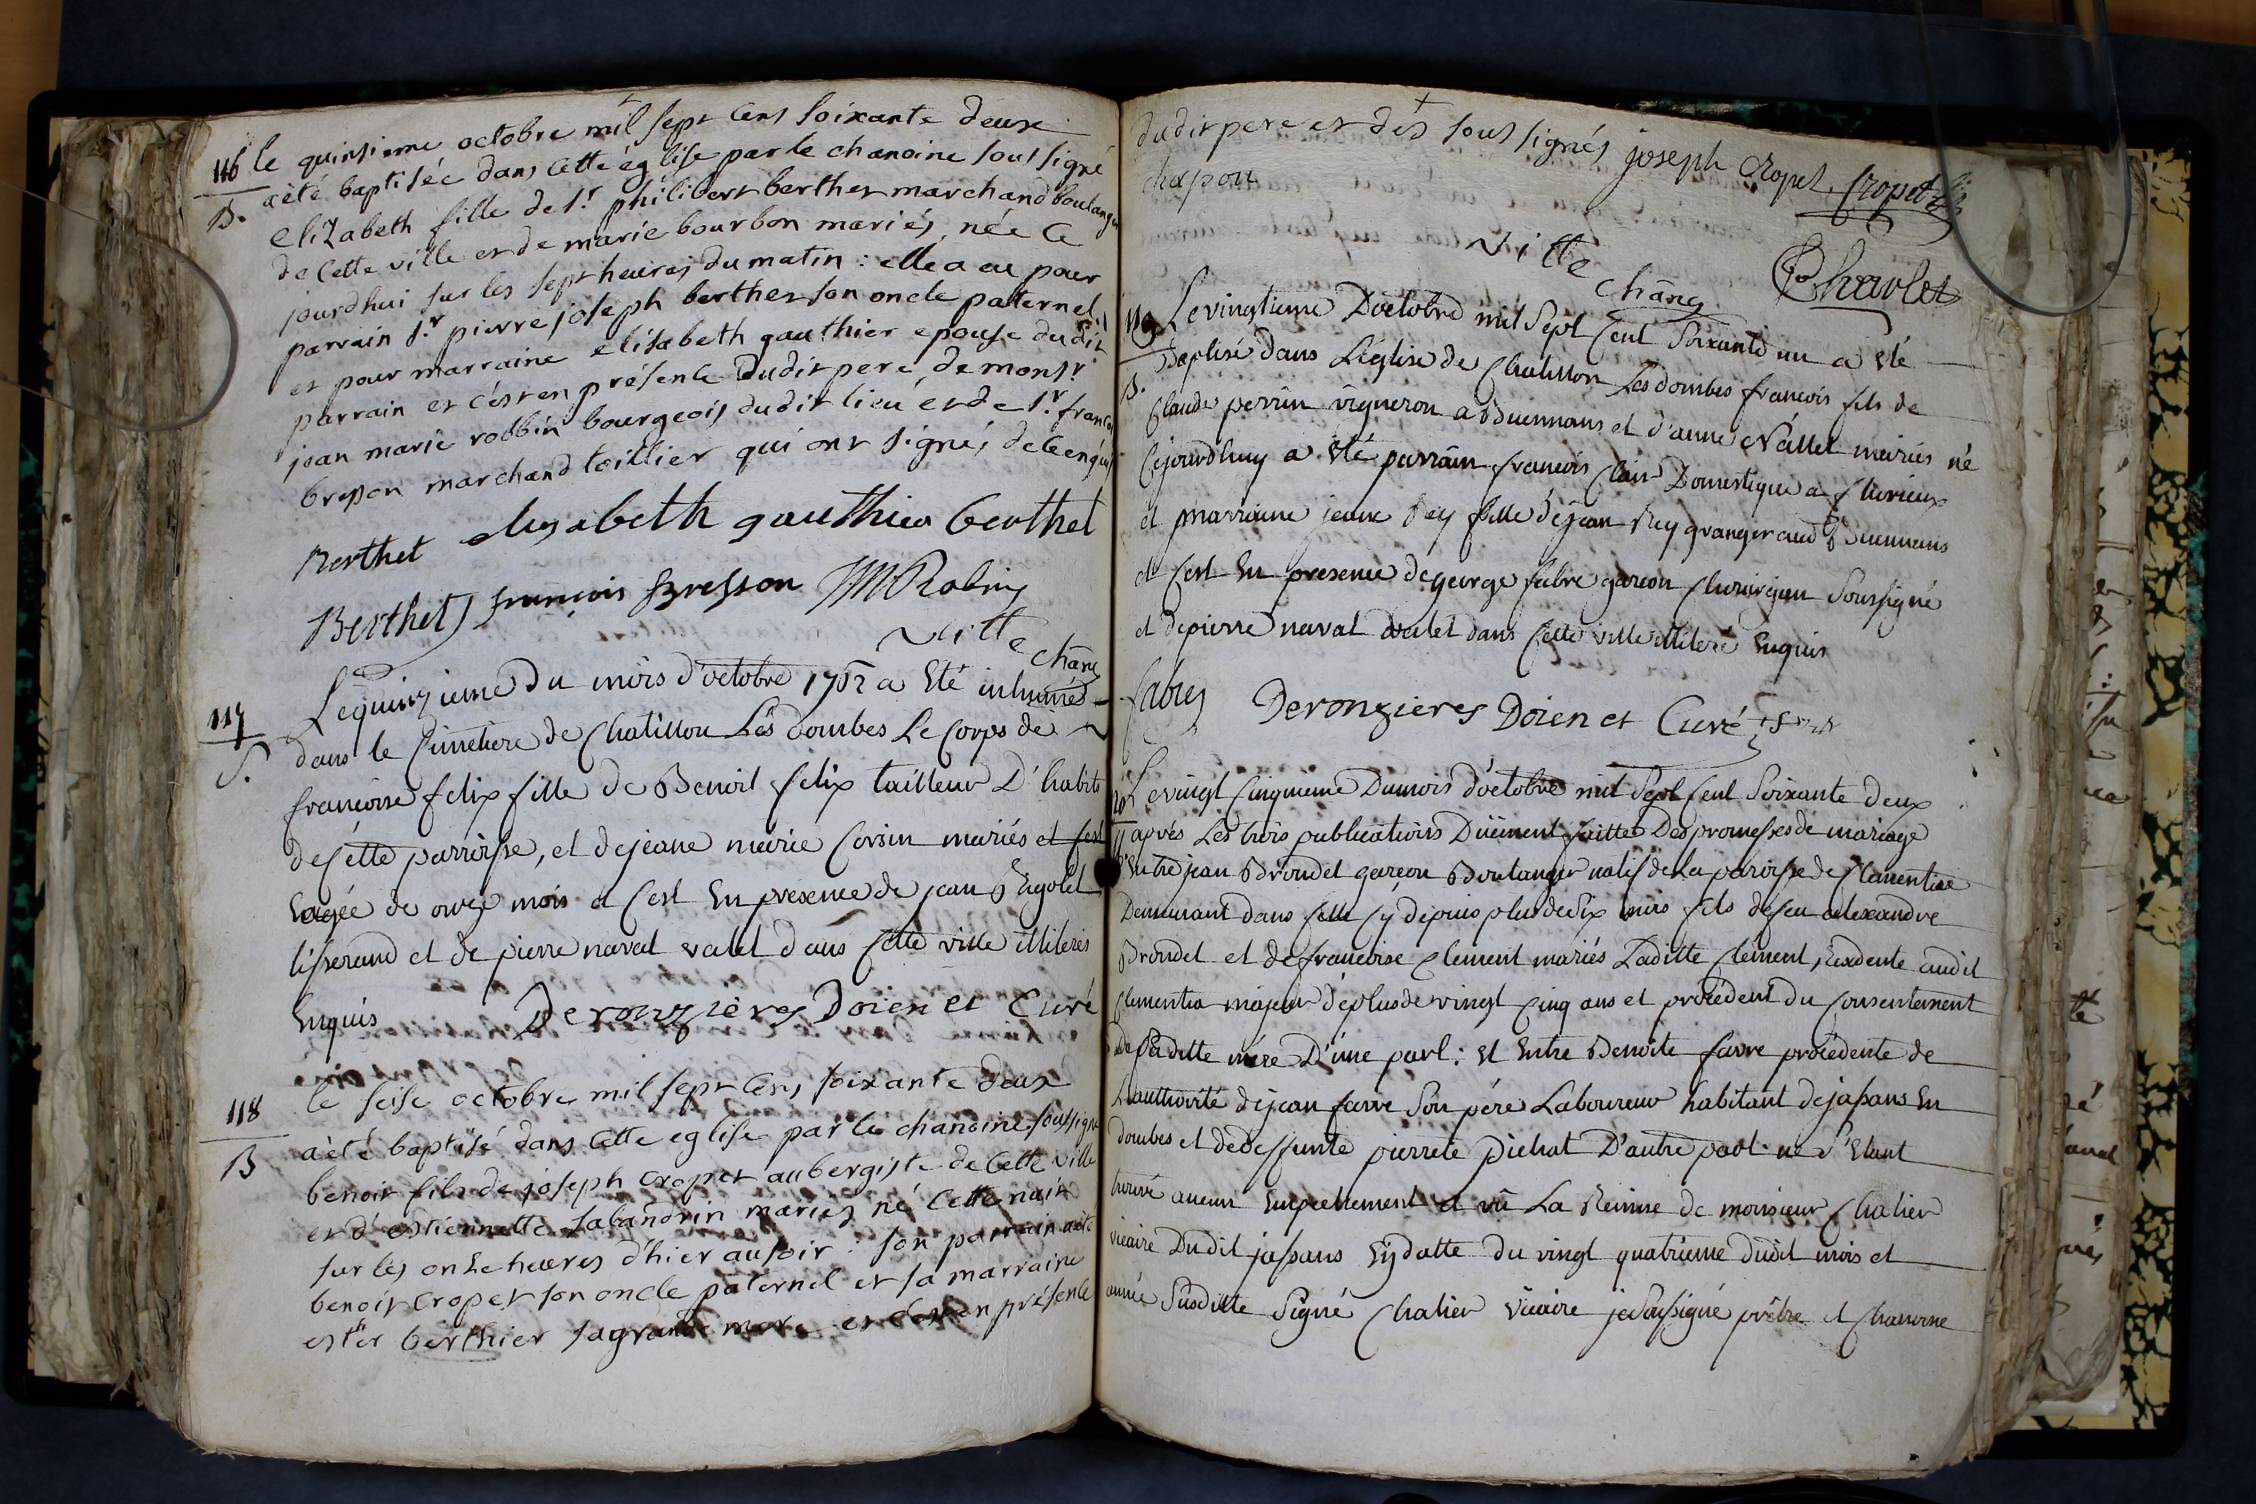 116 le quinsieme octobre mil sept cens soixante deux
B. a été baptisée dans cette église par le chanoine soussigné
eliZabeth fille de sr. philibert berthet marchand boulanger
de cette ville et de marie bourbon mariés, née ce
jourdhui sur les sept heures du matin : elle a eu pour
parrain sr. pierre joseph berthet son oncle paternel,
et pour marraine elisabeth gauthier epouse dudit
parrain et c'est en présence dudit pere, de monsr.
jean marie robbin bourgeois dudit lieu et de sr. francois
bresson marchand toillier qui ont signés de ce enquis
Berthet elisabeth gauthier berthet
Berthet françois Bresson JM Robin
Vitte chãne
117 Lequinzieme du mois d'octobre 1762 a Eté inhumée
S. dans le Cimetiere de Chatillon Lês Dombes Le Corps de
françoise felix fille de Benoit felix tailleur D'habits
de cette parroisse, et de jeane marie Corsin mariés et cest
Eagée de onze mois et Cest En presence de jean
tisserand et de pierre naval valet dans Cette ville illiterés
Enquis Deronzieres Doien et Curé
118 le seise octobre mil sept cens soixante deux
B a été baptisé dans cette eglise par le chanoine soussigné
benoit fils de joseph cropet aubergiste de cette ville
et d'estiennette salandrin mariés né cette nuit
sur les onze heures d'hier au soir : son parrain a été
benoit cropet son oncle paternel et sa marraine
ester berthier sa grand mere et c'est en présence
dudit pere et des soussignés joseph Cropet Cropet fils
chapon
Vitte chãne Charlet
119 Le vingtieme D'octobre mil Sept Cent Soixante un a Eté
B. Baptisé dans L'église de Chatillon Les dombes francois fils de
Claude perrin vigneron a Buennans et d'anne Vallet mariés né
Cejourdhuy a Eté parrain francois Clair Domestique a fluvieux
et marraine jeane Rey fille de jean Rey granger aud Buennans
et Cest En presence de george fabre garcon Chirurgien Soussigné
et de pierre naval valet dans Cette ville illiteré Enquis
fabre Deronzieres Doien et Curé
120 Le vingt Cinquieme Du mois d'octobre mil Sept Cent Soixante deux
apres Les trois publications Düement faittes Des promesses de mariage
Entre jean Brondel garçon Boulanger natif de La paroisse de Clementia
Demeurant dans Celle Cy depuis plus de Six mois fils de feu alexandre
Brondel et de francoise Clement mariés Laditte Clement, Residente audit
Clementia majeur de plus de vingt Cinq ans et procedent Du Consentement
de saditte mére D'üne part : et Entre Benoite favre procédente de
L'authorité de jean favre Son pére Laboureur habitant de jassans En
dombes et de deffunte pierrete Pichat D'autre part ne s'Etant
trouvé aucun Empechement et vû La Remise de monsieur Chalier
vicaire Dudit jassans En datte du vingt quatrieme dudit mois et
année Susditte Signé Chalier Vicaire je Soussigné prêtre et Chanoine